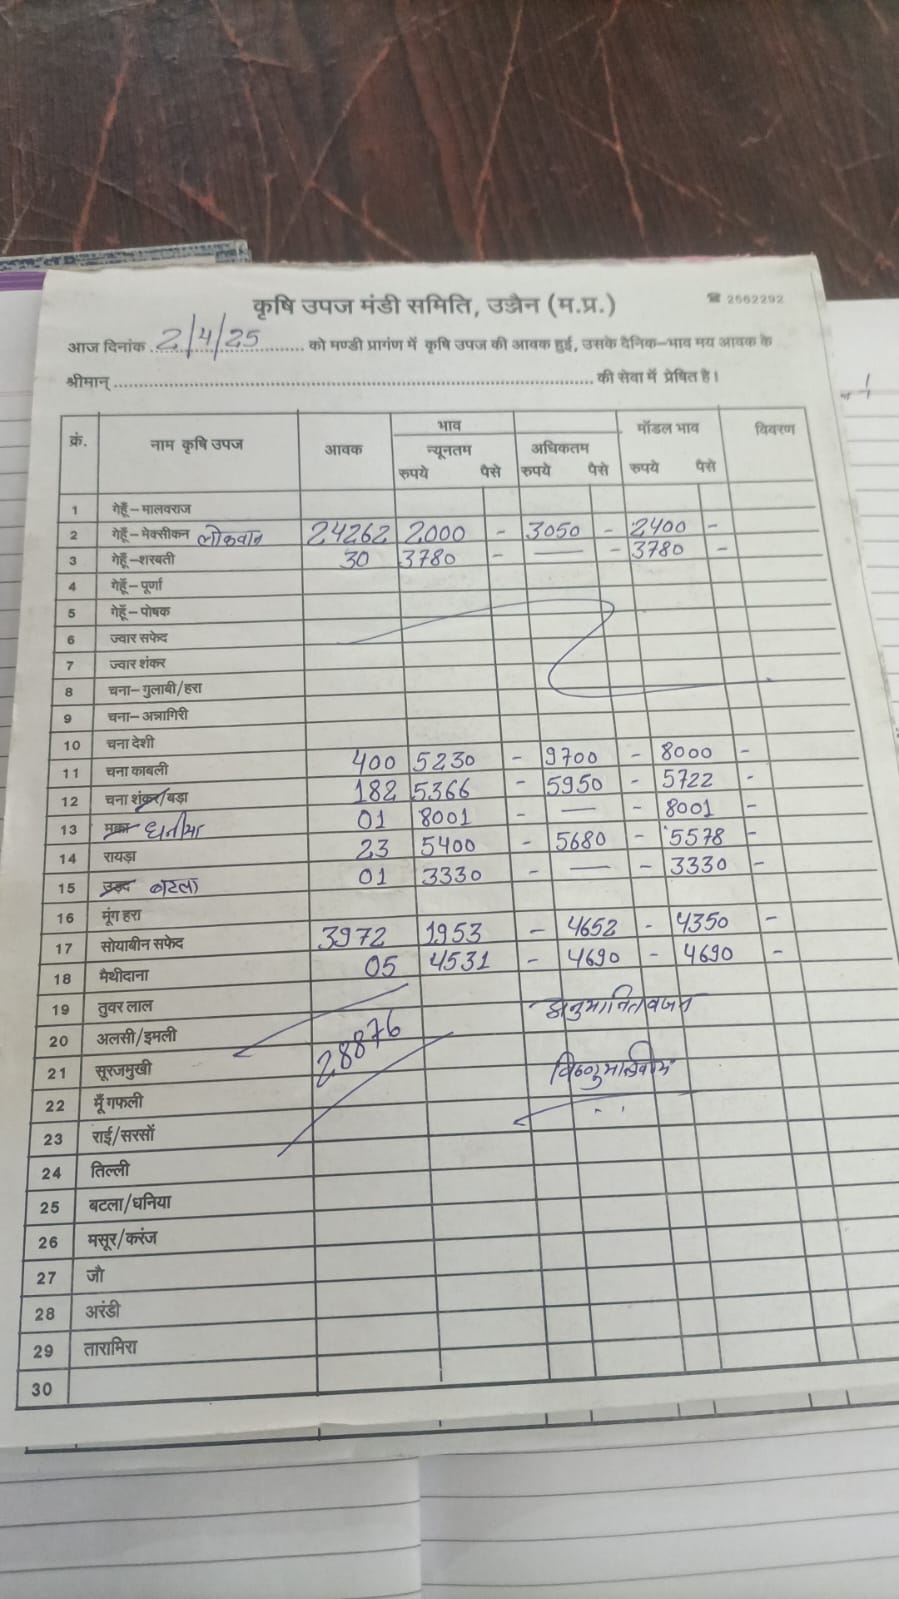 कृषि उपज मंडी समिति, उज्जैन (म.प्र.) ☎ 2562292
आज दिनांक 2/4/25 को मण्डी प्रागंण में कृषि उपज की आवक हुई, उसके दैनिक-भाव मय आवक के
श्रीमान् की सेवा में प्रेषित है।
क्रं. नाम कृषि उपज आवक भाव मॉडल भाव विवरण
न्यूनतम अधिकतम
रुपये पैसे रुपये पैसे रुपये पैसे
1 गेहूँ-मालवराज
2 गेहूँ-मेक्सीकन लोकवान 24262 2000 - 3050 - 2400 -
3 गेहूँ-शरबती 30 3780 - — - 3780 -
4 गेहूँ-पूर्णा
5 गेहूँ-पोषक
6 ज्वार सफेद
7 ज्वार शंकर
8 चना-गुलाबी/हरा
9 चना-अन्नागिरी
10 चना देशी
11 चना काबली 400 5230 - 9700 - 8000 -
12 चना शंकर/बड़ा 182 5366 - 5950 - 5722 -
13 मक्का धनीया 01 8001 - — - 8001 -
14 रायड़ा 23 5400 - 5680 - 5578 -
15 उड़द बटला 01 3330 - — - 3330 -
16 मूंग हरा
17 सोयाबीन सफेद 3972 1953 - 4652 - 4350 -
18 मैथीदाना 05 4531 - 4690 - 4690 -
19 तुवर लाल अनुमानित वजन
20 अलसी/इमली 28876
21 सूरजमुखी
22 मूँगफली
23 राई/सरसों
24 तिल्ली
25 बटला/धनिया
26 मसूर/करंज
27 जौ
28 अरंडी
29 तारामिरा
30